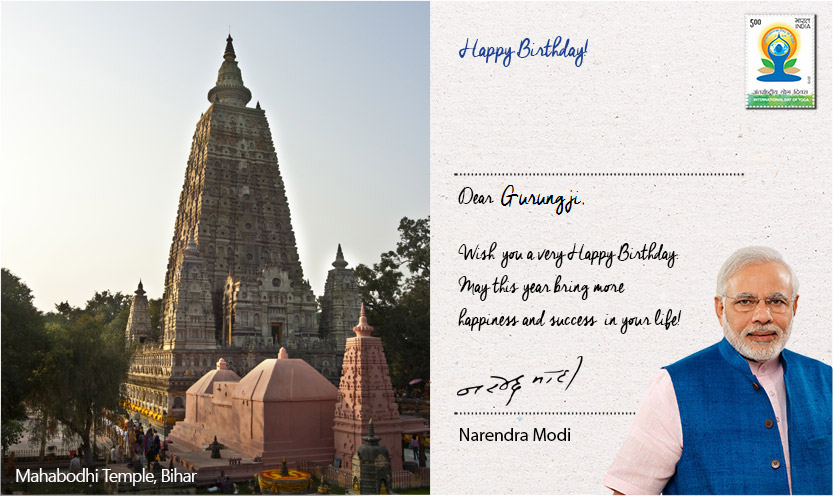 Happy Birthday!
5.00
भारत
INDIA
अंतर्राष्ट्रीय योग दिवस
INTERNATIONAL DAY OF YOGA
Dear Gurungji,
Wish you a very Happy Birthday.
May this year bring more
happiness and success in your life!
नरेन्द्र मोदी
Narendra Modi
Mahabodhi Temple, Bihar